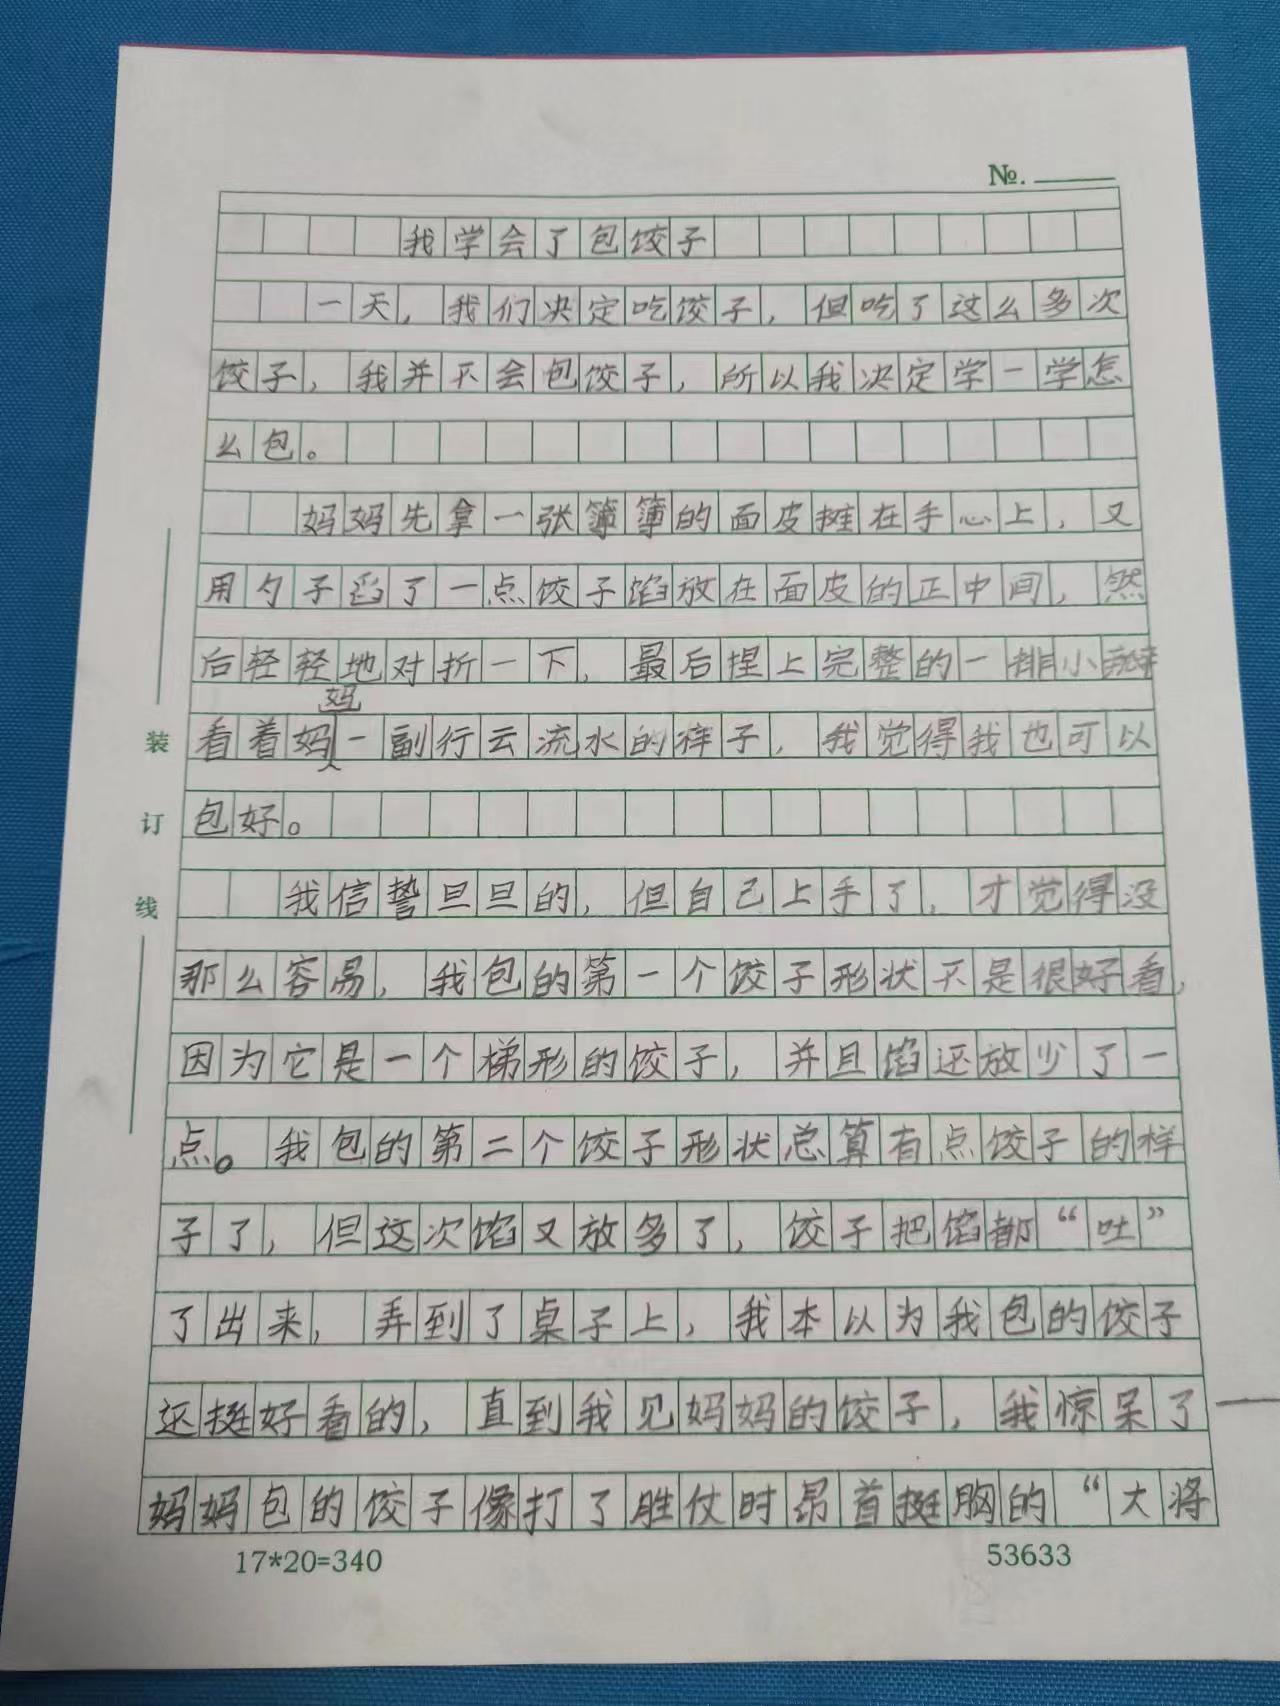 №.
我学会了包饺子
一天，我们决定吃饺子，但吃了这么多次
饺子，我并不会包饺子，所以我决定学一学怎
么包。
妈妈先拿一张簿簿的面皮摊在手心上，又
用勺子舀了一点饺子馅放在面皮的正中间，然
后轻轻地对折一下，最后捏上完整的一排小
看着妈妈一副行云流水的样子，我觉得我也可以
包好。
我信誓旦旦的，但自己上手了，才觉得没
那么容易，我包的第一个饺子形状不是很好看，
因为它是一个梯形的饺子，并且馅还放少了一
点。我包的第二个饺子形状总算有点饺子的样
子了，但这次馅又放多了，饺子把馅都“吐”
了出来，弄到了桌子上，我本以为我包的饺子
还挺好看的，直到我见妈妈的饺子，我惊呆了——
妈妈包的饺子像打了胜仗时昂首挺胸的“大将
装
订
线
17*20=340
53633